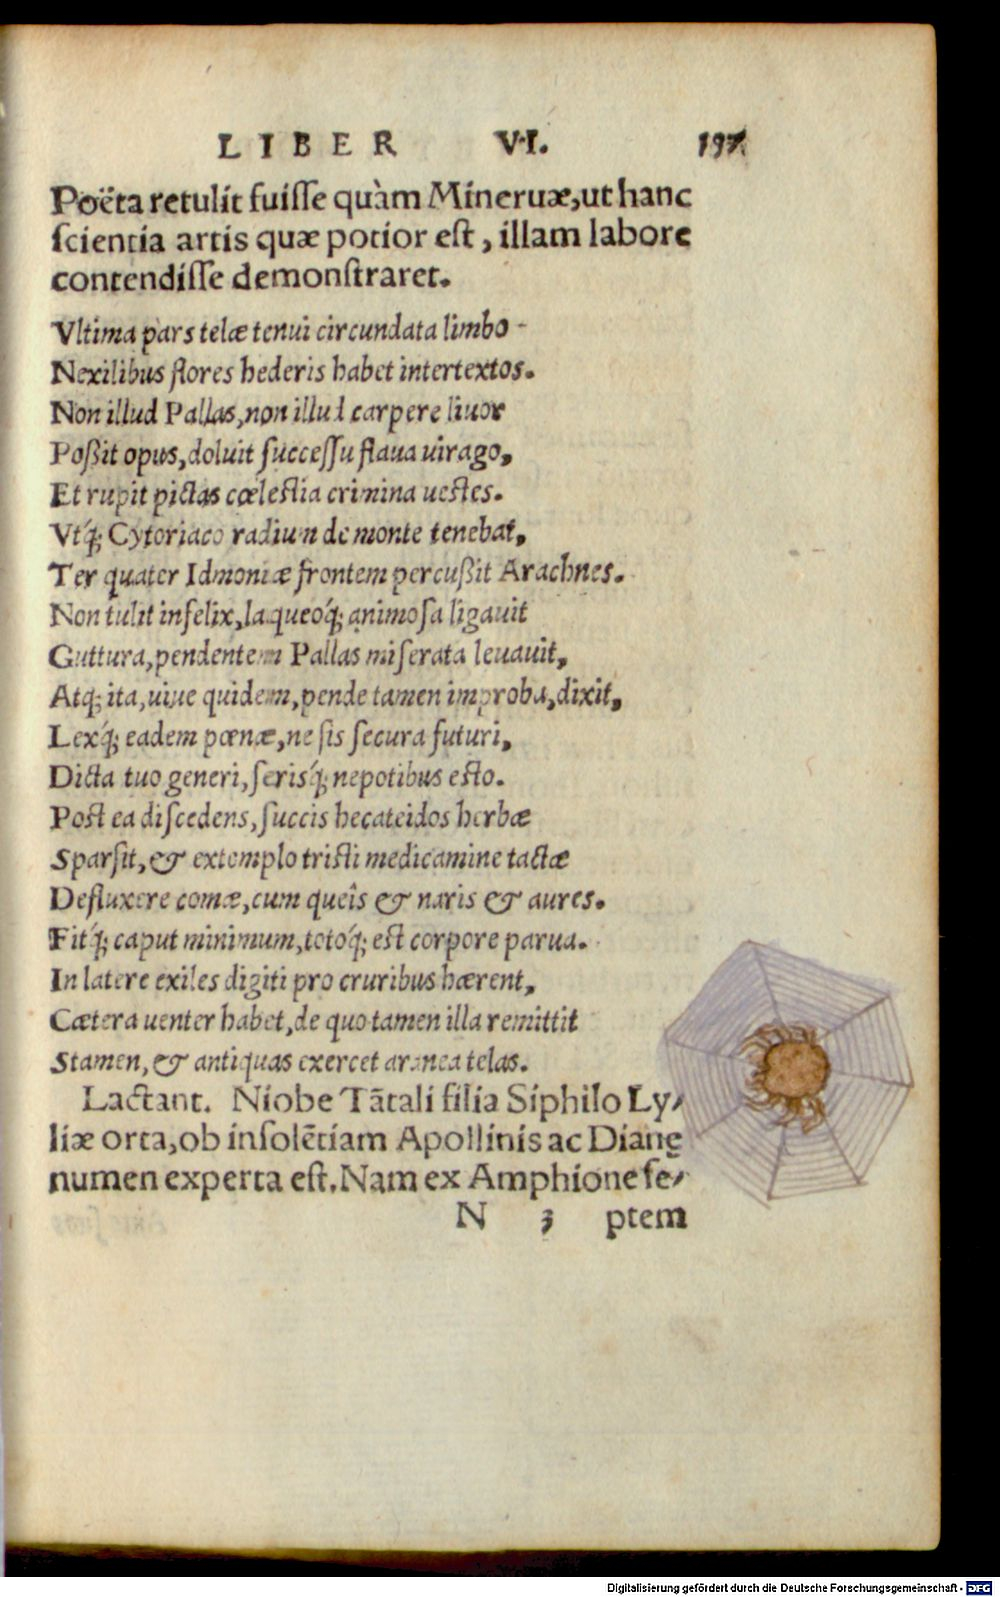 LIBER VI. 197
Poëta retulit fuiſſe quàm Mineruæ, ut hanc
ſcientia artis quæ potior eſt, illam labore
contendiſſe demonſtraret.
Vltima pars telæ tenui circundata limbo
Nexilibus flores hederis habet intertextos.
Non illud Pallas, non illud carpere liuor
Poßit opus, doluit ſucceſſu flaua uirago,
Et rupit pictas cœleſtia crimina ueſtes.
Vtq́; Cytoriaco radium de monte tenebat,
Ter quater Idmoniæ frontem percußit Arachnes.
Non tulit infelix, laqueoq́; animoſa ligauit
Guttura, pendentem Pallas miſerata leuauit,
Atq; ita, uiue quidem, pende tamen improba, dixit,
Lexq́; eadem pœnæ, ne ſis ſecura futuri,
Dicta tuo generi, ſerisq́; nepotibus eſto.
Poſt ea diſcedens, ſuccis hecateidos herbæ
Sparſit, & extemplo triſti medicamine tactæ
Defluxere comæ, cum queîs & naris & aures.
Fitq́; caput minimum, totoq́; eſt corpore parua.
In latere exiles digiti pro cruribus hærent,
Cætera uenter habet, de quo tamen illa remittit
Stamen, & antiquas exercet aranea telas.
Lactant. Niobe Tãtali filia Siphilo Ly-
liæ orta, ob inſolẽtiam Apollinis ac Dianę
numen experta eſt. Nam ex Amphione ſe-
N 3 ptem
Digitalisierung gefördert durch die Deutsche Forschungsgemeinschaft - DFG